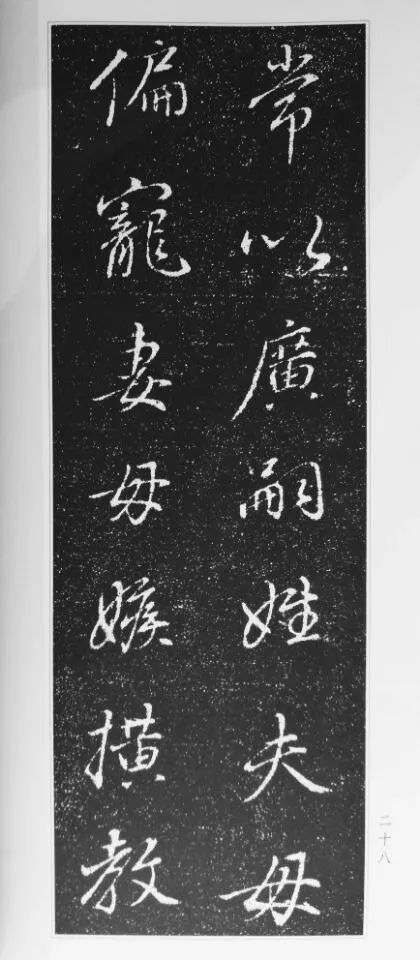 常以廣嗣姓夫毋
偏寵妻毋嫉橫教
二十八